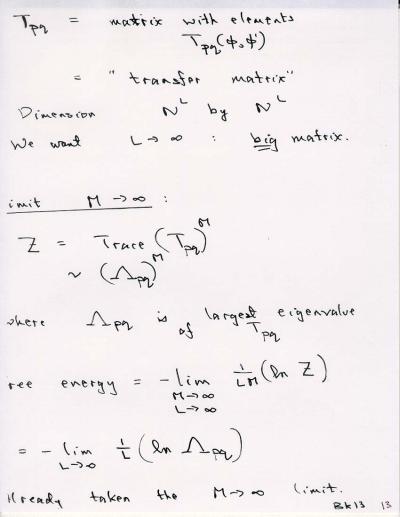 T_pq = matrix with elements
T_pq(ϕ,ϕ')
= "transfer matrix"
Dimension N^L by N^L
We want L → ∞ : big matrix.
imit M → ∞ :
Z = Trace (T_pq)^M
~ (Λ_pq)^M
where Λ_pq is largest eigenvalue
of T_pq
ree energy = -lim 1/LM (ln Z)
M→∞
L→∞
= - lim 1/L (ln Λ_pq)
L→∞
Already taken the M→∞ limit.
Bk13 13